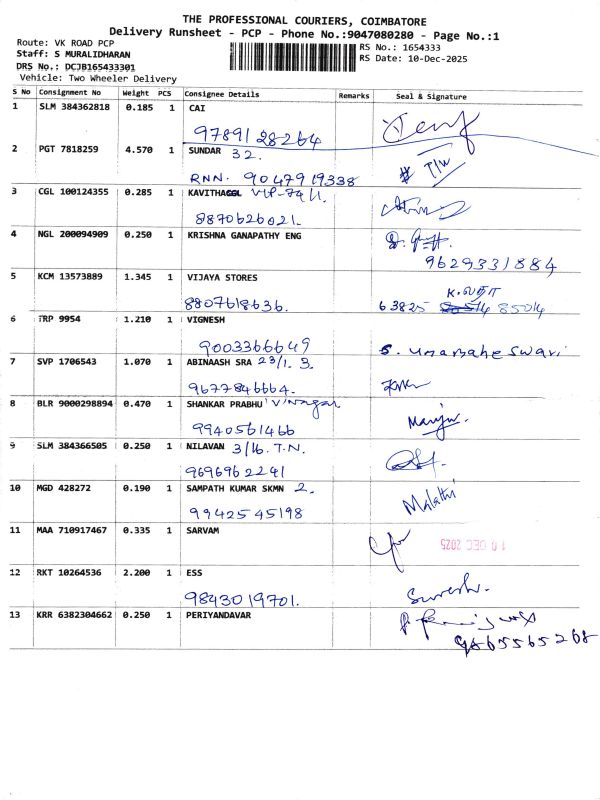 THE PROFESSIONAL COURIERS, COIMBATORE
Delivery Runsheet - PCP - Phone No.:9047080280 - Page No.:1
Route: VK ROAD PCP
RS No.: 1654333
Staff: S MURALIDHARAN
RS Date: 10-Dec-2025
DRS No.: DCJB165433301
Vehicle: Two Wheeler Delivery
S No Consignment No Weight PCS Consignee Details Remarks Seal & Signature
1 SLM 384362818 0.185 1 CAI
9789128264
2 PGT 7818259 4.570 1 SUNDAR 32.
RNN. 9047919338 # T/W
3 CGL 100124355 0.285 1 KAVITHACGL VIP-74/1.
8870626021.
4 NGL 200094909 0.250 1 KRISHNA GANAPATHY ENG
9629331884
5 KCM 13573889 1.345 1 VIJAYA STORES
8807618636. 63825 14 85014
6 TRP 9954 1.210 1 VIGNESH
9003366649 S. umamaheswari
7 SVP 1706543 1.070 1 ABINAASH SRA 23/1. 3.
9677846664.
8 BLR 9000298894 0.470 1 SHANKAR PRABHU Vinagar
9940561466 Manju
9 SLM 384366505 0.250 1 NILAVAN 3/16. T.N.
9696962241
10 MGD 428272 0.190 1 SAMPATH KUMAR SKMN 2.
9942545198 Malathi
11 MAA 710917467 0.335 1 SARVAM
10 DEC 2025
12 RKT 10264536 2.200 1 ESS
9843019701. Suresh.
13 KRR 6382304662 0.250 1 PERIYANDAVAR
9865565268